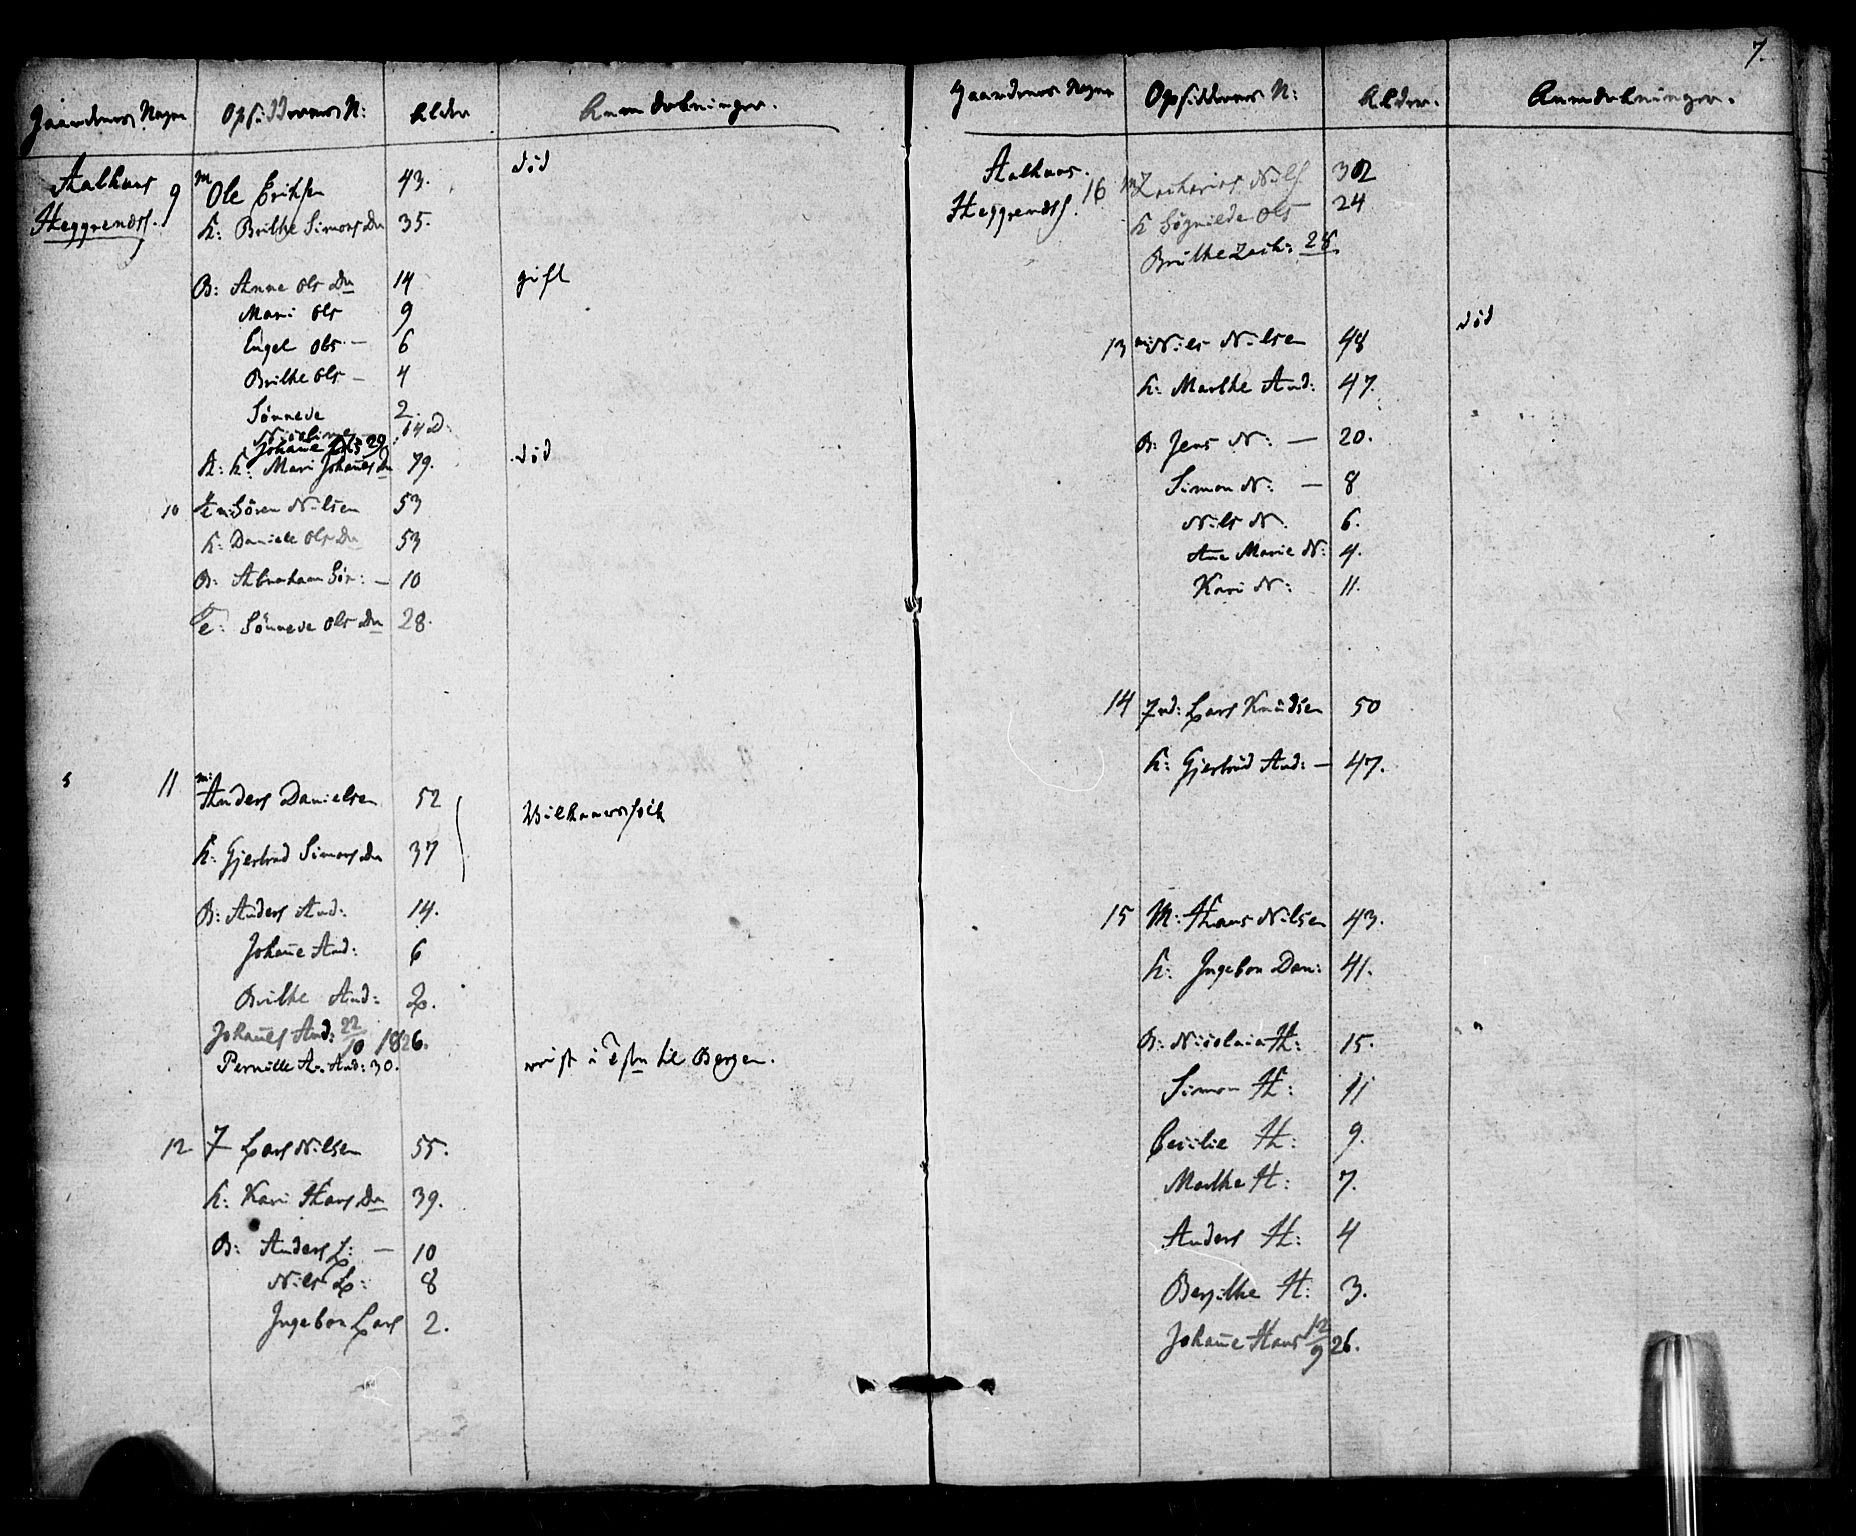 Gaardenes Nagn Opsiddernes N: Alder Anmærkninger.
Aalhuus 9 m Ole Eriksen 43. død
Heggrends. K: Brithe Simons Dr 35.
B: Anne Ols Dr 14 gift
Mari Ols 9
Engel Ols — 6
Brithe Ols — 4
Sønneve 2.
Nicoline — 14 D:
Johañe Ols 29
K: Mari Johañes Dr 79. død
10 Søren Nilsen 53
K: Daniele Ols Dr 53
B: Abraham Sør: — 10
Sønneve Ols Dr 28.
11 m: Anders Danielsen 52
K: Gjertrud Simons Dr 37
B: Anders And: 14.
Johañe And: 6
Brithe And: 2.
Johañes And: 22/10 1826.
Pernille A. And: 30. til Bergen.
12. Lars Nilsen 55.
K: Kari Hans Dr 39.
B: Anders L: — 10
Nils L: 8
Ingebor Lars 2.
7.
Gaardenes Nagn Opsiddernes N: Alder. Anmærkninger.
Aalhuus. 16 m Zacharias Nils 32
Heggrends. K Søgniede Ols 24
Brithe Zach: 28.
13 m: Nils Nilsen 48 død
K: Marthe And: 47.
B: Jens N: — 20.
Simon N: — 8
Nils N. 6.
Ane Marie N: 4.
Kari N: 11.
14 Ind: Lars Knudsen 50
K: Gjertrud And: — 47.
15 M: Hans Nilsen 43.
K: Ingebor Dan: 41.
B: Nicolai H: 15.
Simon H: 11
Cecilie H: 9.
Marthe H: 7.
Anders H: 4
Berjithe H: 3.
Johañe Hans 12/9 26.